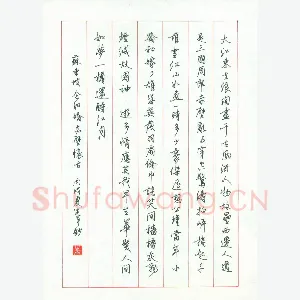 大江東去浪淘盡千古風流人物故壘西邊人道
是三國周郎赤壁亂石穿空驚濤拍岸捲起千
堆雪江山如畫一時多少豪傑遙想公瑾當年小
喬初嫁了雄姿英發羽扇綸巾談笑間檣櫓灰飛
煙滅故國神遊多情應笑我早生華髮人間
如夢一樽還酹江月
蘇東坡念奴嬌赤壁懷古
Shufawang.CN